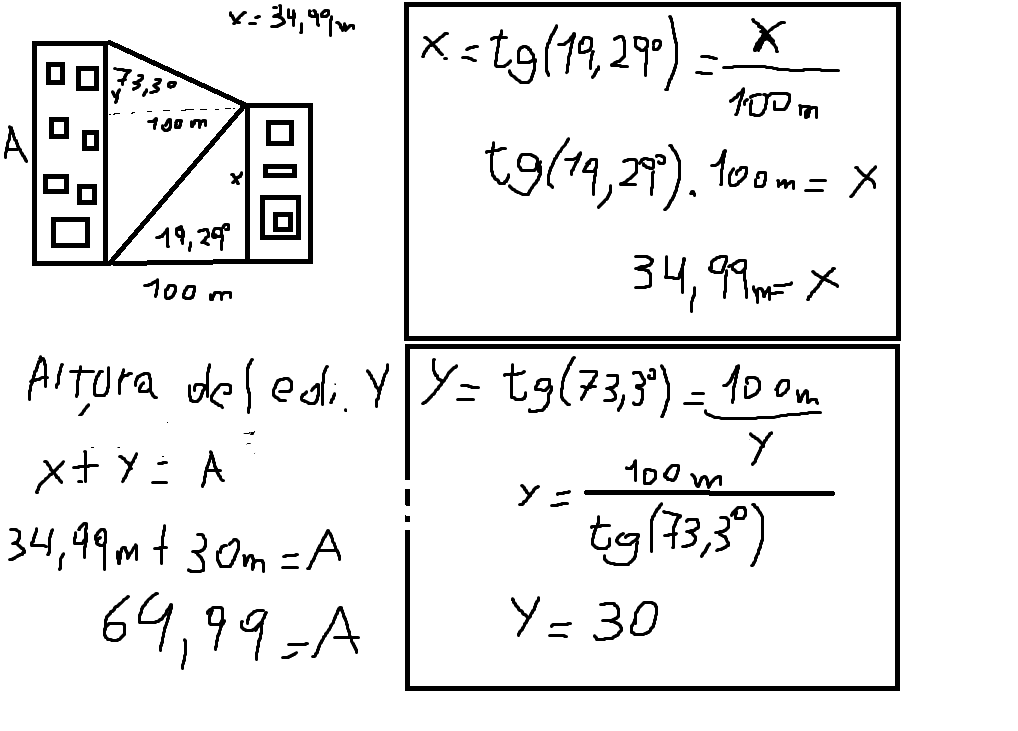 x = 34,99m
73,3°
y
100 m
A
x
19,29°
100 m
x = tg(19,29°) = x
100 m
tg(19,29°). 100m = x
34,99m = x
Altura del edi. y
x + y = A
34,99m + 30m = A
64,99 = A
y = tg(73,3°) = 100m
y
y = 100 m
tg(73,3°)
y = 30